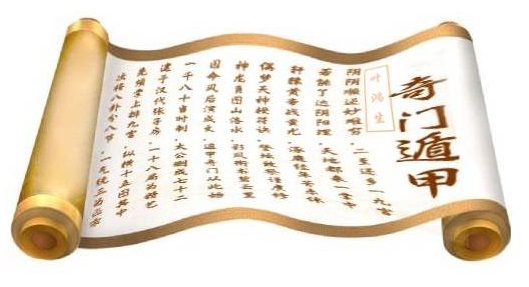 奇门遁甲
叶鸿生
阴阳顺逆妙难穷·二至还乡一九宫
若能了达阴阳理·天地都来一掌中
轩辕黄帝战蚩尤·涿鹿经年苦未休
偶梦天神授符诀·登坛致祭谨虔修
神龙负图出洛水·彩凤衔书碧云里
因命风后演成文·遁甲奇门从此始
一千八十当时制·太公删成七十二
逮于汉代张子房·一十八局为精艺
先须掌上排九宫·纵横十五图其中
次将八卦分八节·一气统三为正宗